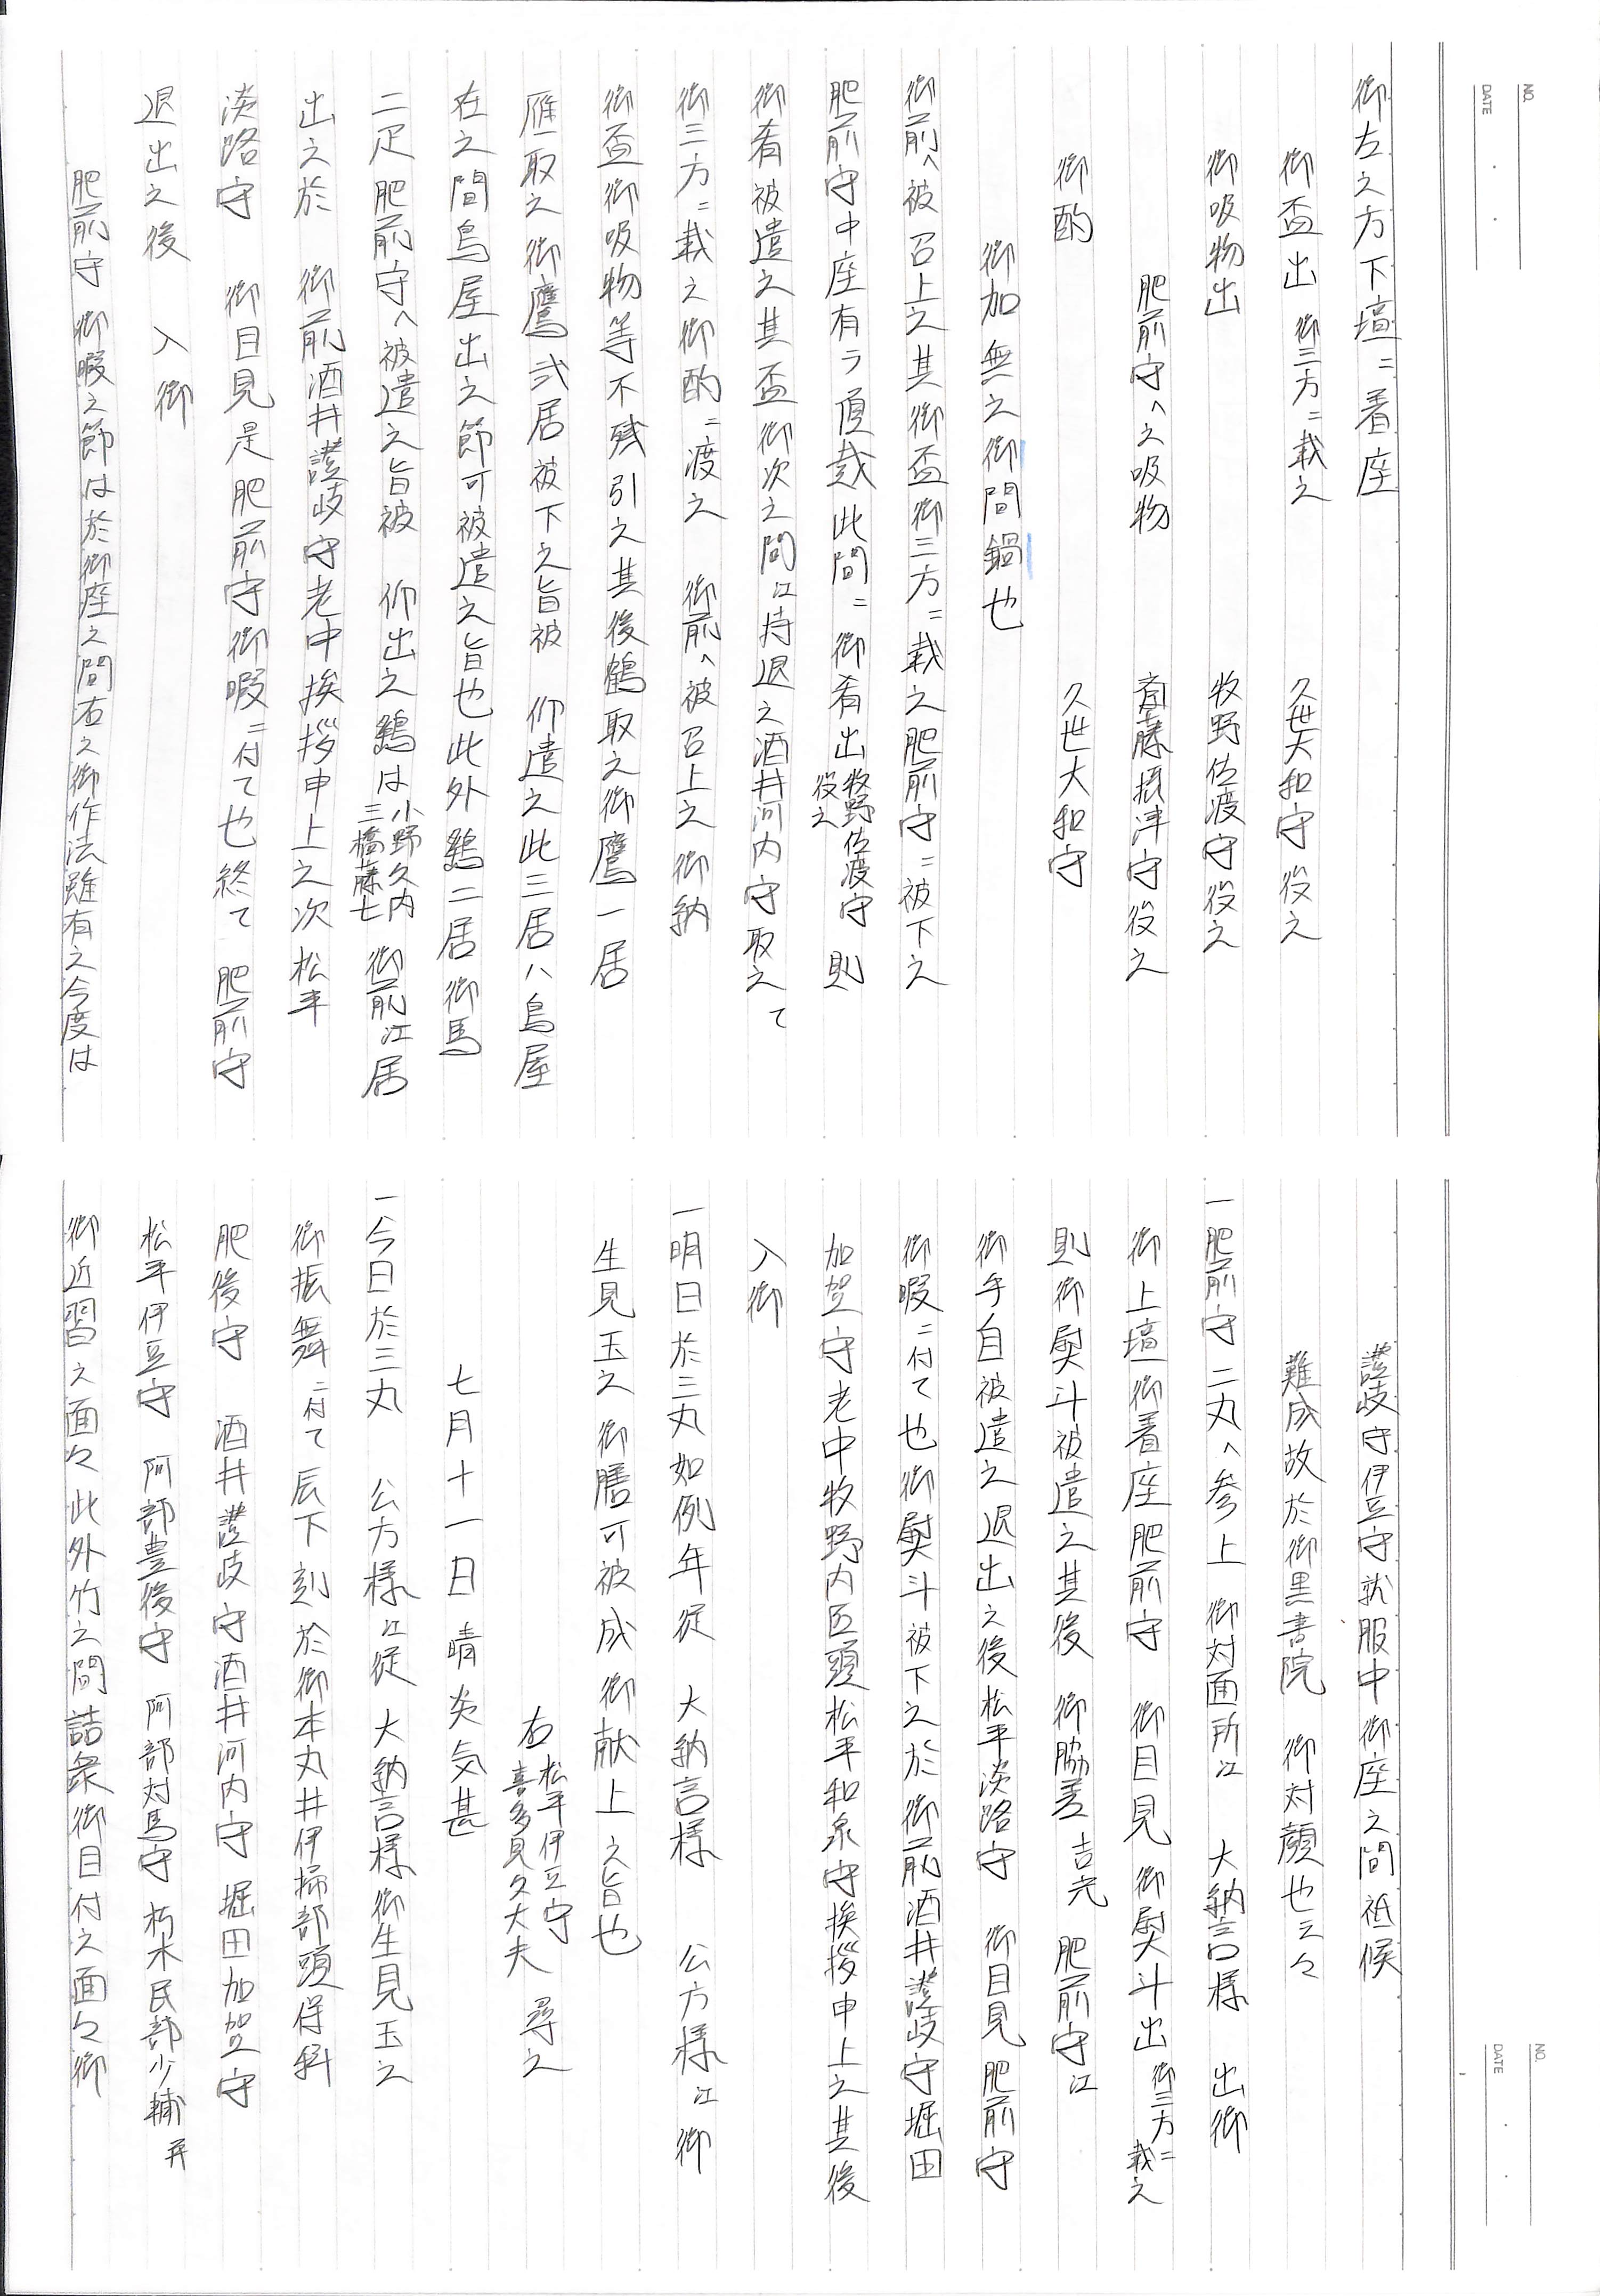 NO.
DATE
御左之方下壇ニ着座
御盃出 御三方ニ載之 久世大和守役之
御吸物出 牧野佐渡守役之
肥前守へ之吸物 斎藤摂津守役之
御酌 久世大和守
御加無之御間鍋也
御前へ被召上之其御盃御三方ニ載之肥前守ニ被下之
肥前守中座有ラ頂戴此間ニ御肴出 牧野佐渡守役之 則
御肴被遣之其盃御次之間江持退之酒井河内守取之て
御三方ニ載之御酌ニ渡之 御前へ被召上之御納
御盃御吸物等不残引之其後鶴取之御鷹一居
雁取之御鷹弐居被下之旨被 仰遣之此三居ハ鳥屋
在之間鳥屋出之節可被遣之旨也此外鷂二居御馬
二疋肥前守へ被遣之旨被 仰出之鷂は 小野久内 三橋藤七 御前江居
出之於 御前酒井讃岐守老中挨拶申上之次松平
淡路守 御目見是肥前守御暇ニ付て也終て 肥前守
退出之後 入御
肥前守御暇之節は於御座之間右之御作法雖有之今度は
NO.
DATE
讃岐守伊豆守就服中御座之間祗候
難成故於御黒書院 御対顔也云々
一肥前守二丸へ参上 御対面所江 大納言様 出御
御上壇御着座肥前守 御目見 御熨斗出 御三方ニ載之
則御熨斗被遣之其後 御脇差 吉光 肥前守江
御手自被遣之退出之後松平淡路守 御目見肥前守
御暇ニ付て也御熨斗被下之於御前酒井讃岐守堀田
加賀守老中牧野内匠頭松平和泉守挨拶申上之其後
入御
一明日於三丸如例年従 大納言様 公方様江御
生見玉之御膳可被成御献上之旨也
右 松平伊豆守 喜多見久大夫 尋之
七月十一日晴炎気甚
一今日於三丸 公方様江従 大納言様御生見玉之
御振舞ニ付て辰下刻於御本丸井伊掃部頭保科
肥後守 酒井讃岐守酒井河内守 堀田加賀守
松平伊豆守 阿部豊後守 阿部対馬守 朽木民部少輔并
御近習之面々此外竹之間詰衆御目付之面々御